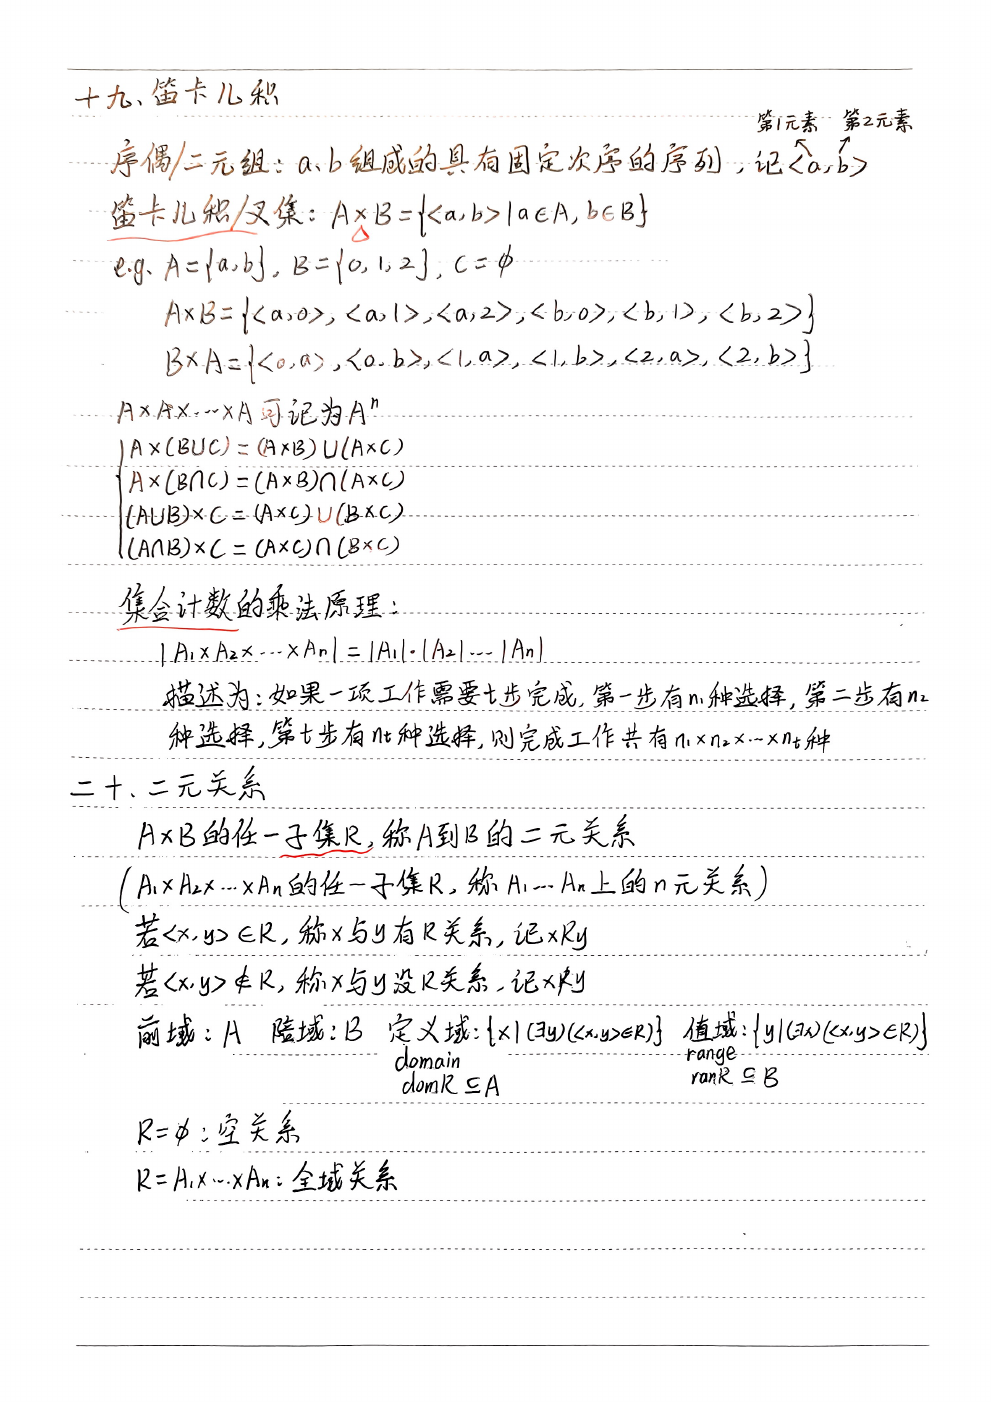 十九、笛卡儿积
第1元素 第2元素
序偶/二元组：a、b组成的具有固定次序的序列，记<a,b>
笛卡儿积/叉集：A×B={<a,b>|a∈A, b∈B}
e.g. A={a,b}, B={0,1,2}, C=∅
A×B={<a,0>,<a,1>,<a,2>,<b,0>,<b,1>,<b,2>}
B×A={<0,a>,<0,b>,<1,a>,<1,b>,<2,a>,<2,b>}
A×A×…×A可记为Aⁿ
A×(B∪C)=(A×B)∪(A×C)
A×(B∩C)=(A×B)∩(A×C)
(A∪B)×C=(A×C)∪(B×C)
(A∩B)×C=(A×C)∩(B×C)
集合计数的乘法原理：
|A₁×A₂×…×Aₙ|=|A₁|·|A₂|…|Aₙ|
描述为：如果一项工作需要t步完成，第一步有n₁种选择，第二步有n₂
种选择，第t步有nₜ种选择，则完成工作共有n₁×n₂×…×nₜ种
二十、二元关系
A×B的任一子集R，称A到B的二元关系
(A₁×A₂×…×Aₙ的任一子集R，称A₁…Aₙ上的n元关系)
若<x,y>∈R，称x与y有R关系，记xRy
若<x,y>∉R，称x与y没R关系，记xR̸y
前域：A 陪域：B 定义域：{x|(∃y)(<x,y>∈R)} 值域：{y|(∃x)(<x,y>∈R)}
domain range
domR⊆A ranR⊆B
R=∅：空关系
R=A₁×…×Aₙ：全域关系